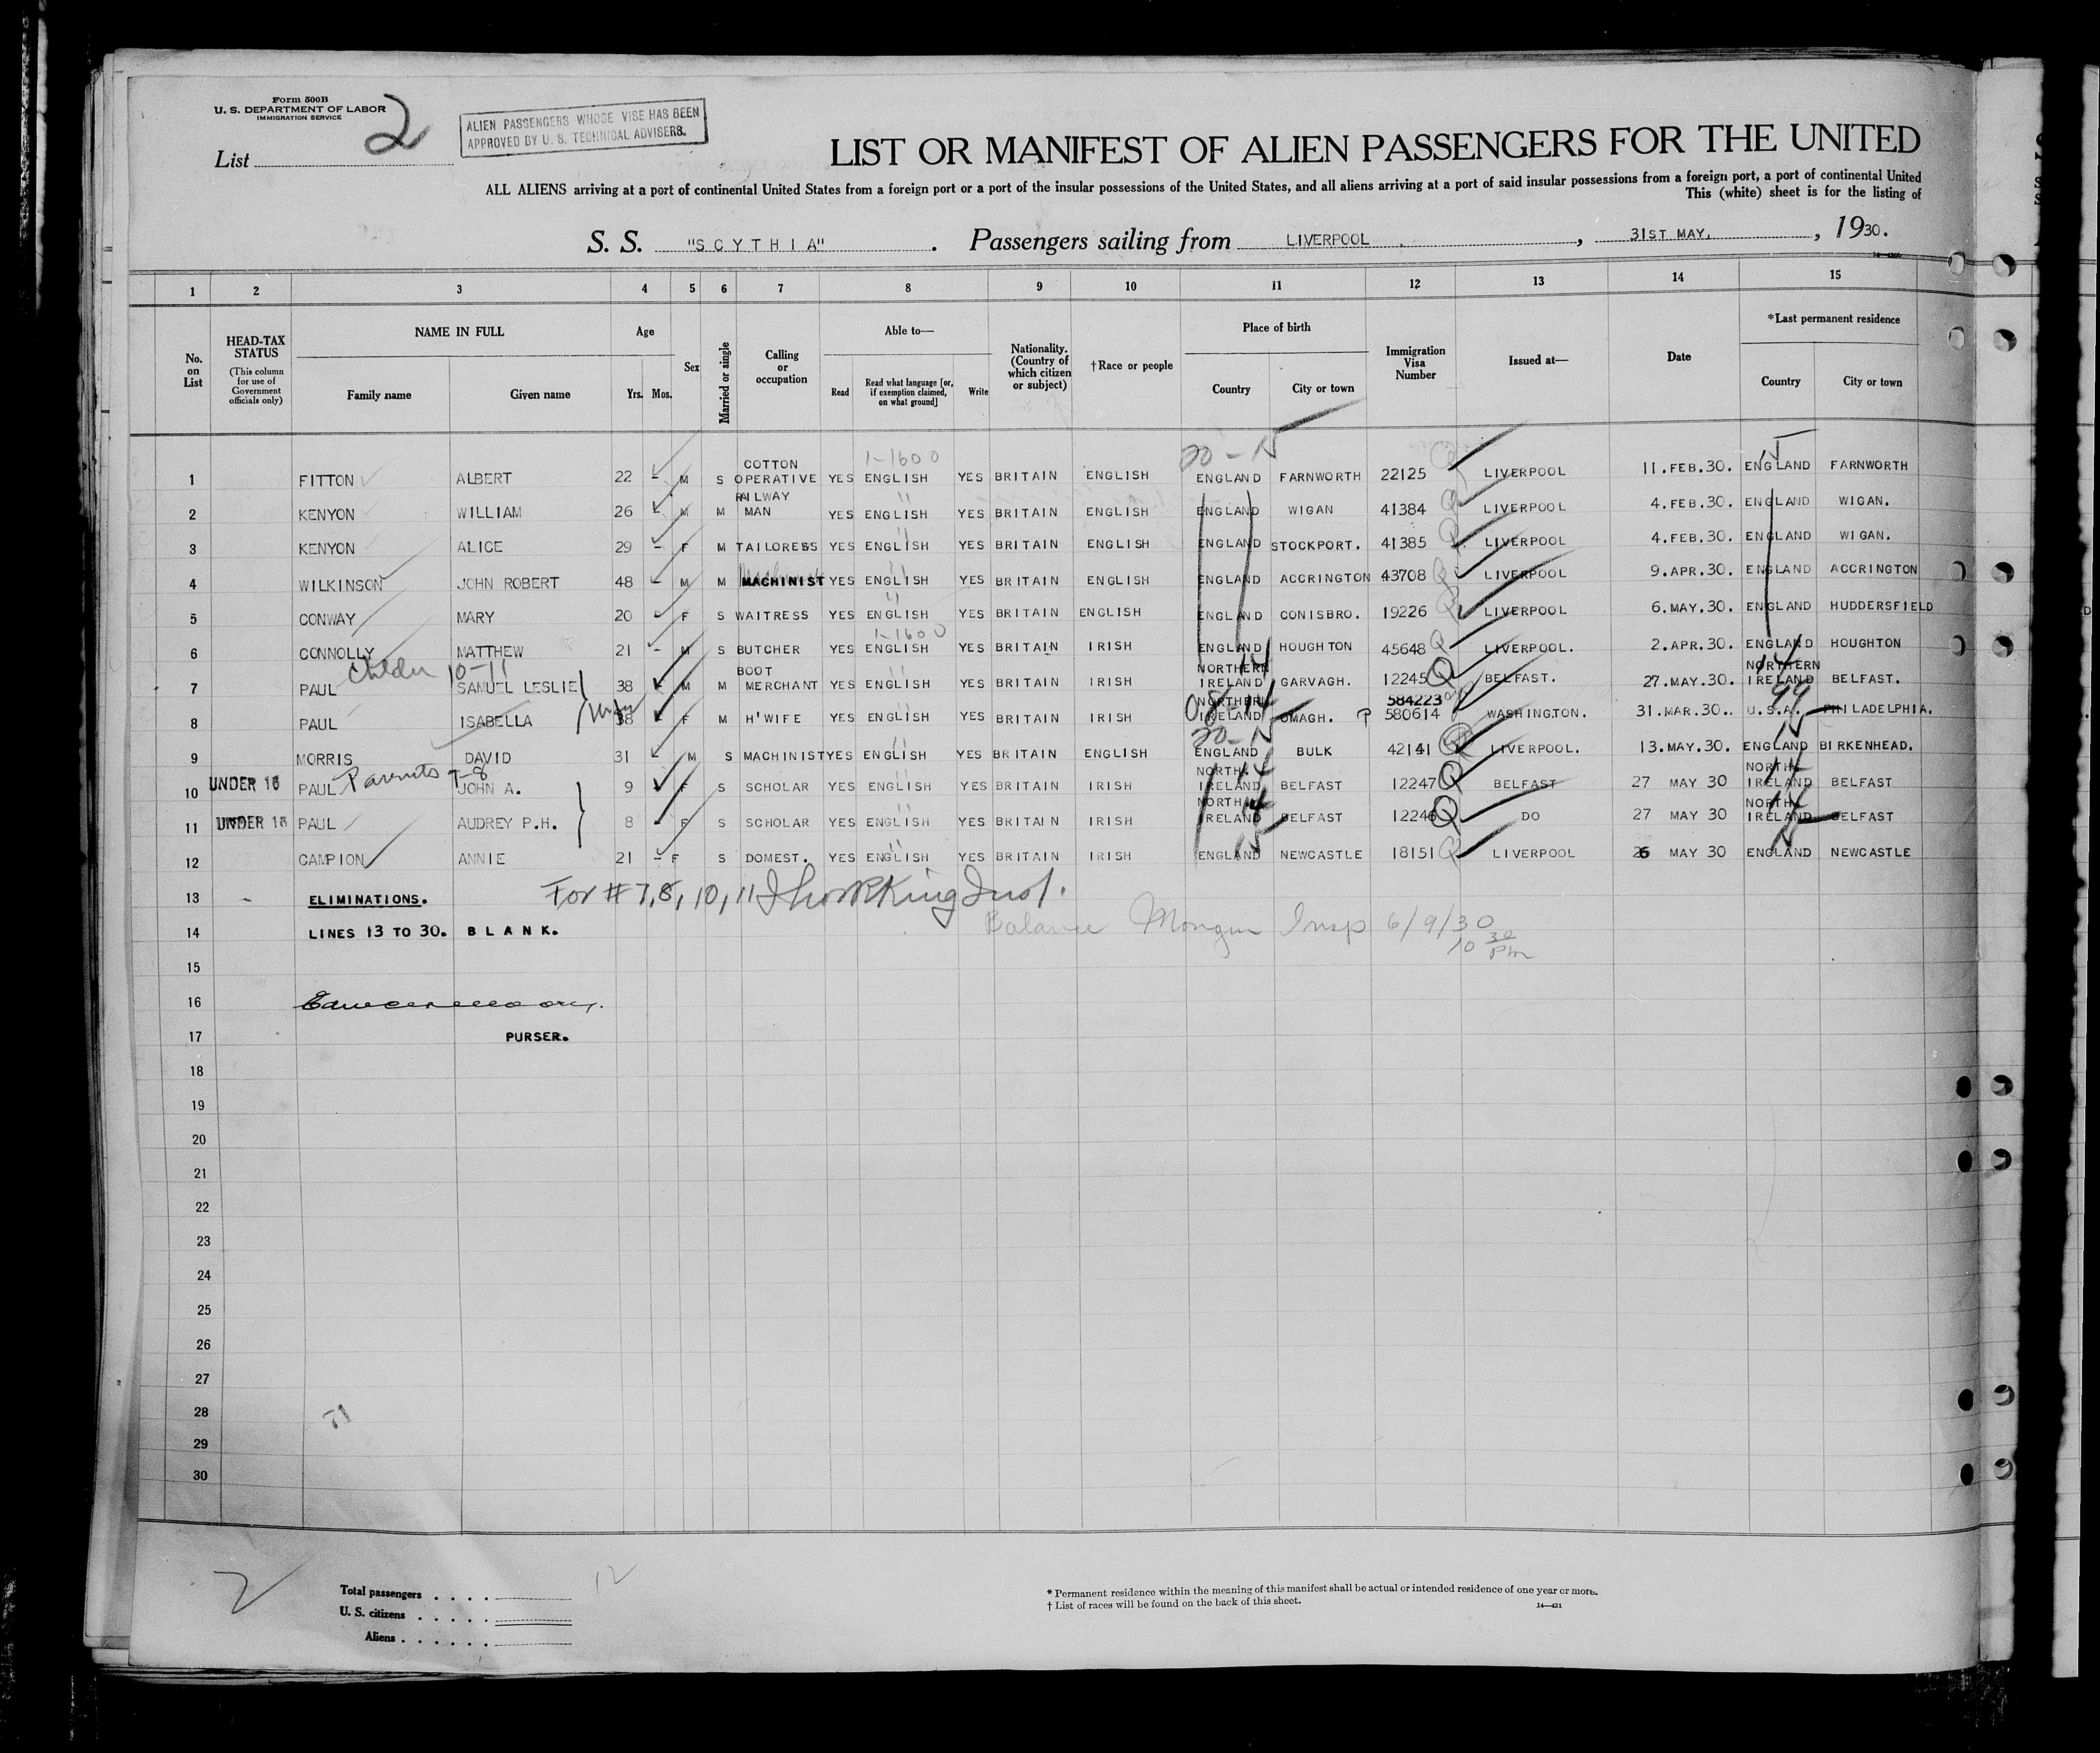 Form 500B
U. S. DEPARTMENT OF LABOR
IMMIGRATION SERVICE
List 2
ALIEN PASSENGERS WHOSE VISE HAS BEEN
APPROVED BY U. S. TECHNICAL ADVISERS.
LIST OR MANIFEST OF ALIEN PASSENGERS FOR THE UNITED
ALL ALIENS arriving at a port of continental United States from a foreign port or a port of the insular possessions of the United States, and all aliens arriving at a port of said insular possessions from a foreign port, a port of continental United
This (white) sheet is for the listing of
S. S. "SCYTHIA". Passengers sailing from LIVERPOOL, 31ST MAY., 1930.
1 2 3 4 5 6 7 8 9 10 11 12 13 14 15
No. on List
HEAD-TAX STATUS (This column for use of Government officials only)
NAME IN FULL Family name Given name
Age Yrs. Mos.
Sex
Married or single
Calling or occupation
Able to— Read Read what language [or, if exemption claimed, on what ground] Write
Nationality. (Country of which citizen or subject)
†Race or people
Place of birth Country City or town
Immigration Visa Number
Issued at—
Date
*Last permanent residence Country City or town
1-1600 20-15 15
1 FITTON ALBERT 22 – M S COTTON OPERATIVE YES ENGLISH YES BRITAIN ENGLISH ENGLAND FARNWORTH 22125 LIVERPOOL 11.FEB.30. ENGLAND FARNWORTH
2 KENYON WILLIAM 26 – M M RAILWAY MAN YES ENGLISH YES BRITAIN ENGLISH ENGLAND WIGAN 41384 LIVERPOOL 4.FEB.30. ENGLAND WIGAN.
3 KENYON ALICE 29 – F M TAILORESS YES ENGLISH YES BRITAIN ENGLISH ENGLAND STOCKPORT. 41385 LIVERPOOL 4.FEB.30. ENGLAND WIGAN.
4 WILKINSON JOHN ROBERT 48 – M M MACHINIST YES ENGLISH YES BRITAIN ENGLISH ENGLAND ACCRINGTON 43708 LIVERPOOL 9.APR.30. ENGLAND ACCRINGTON
5 CONWAY MARY 20 – F S WAITRESS YES ENGLISH YES BRITAIN ENGLISH ENGLAND CONISBRO. 19226 LIVERPOOL 6.MAY.30. ENGLAND HUDDERSFIELD
1-1600
6 CONNOLLY MATTHEW 21 – M S BUTCHER YES ENGLISH YES BRITAIN IRISH ENGLAND HOUGHTON 45648 LIVERPOOL. 2.APR.30. ENGLAND HOUGHTON
Childen 10-11 14 14
7 PAUL SAMUEL LESLIE 38 – M M BOOT MERCHANT YES ENGLISH YES BRITAIN IRISH NORTHERN IRELAND GARVAGH. 12245 BELFAST. 27.MAY.30. NORTHERN IRELAND BELFAST.
584223
8 PAUL ISABELLA 38 – F M H'WIFE YES ENGLISH YES BRITAIN IRISH NORTHERN IRELAND OMAGH. P 580614 WASHINGTON. 31.MAR.30.. U.S.A. 99 PHILADELPHIA.
20-15 15
9 MORRIS DAVID 31 – M S MACHINIST YES ENGLISH YES BRITAIN ENGLISH ENGLAND BULK 42141 LIVERPOOL. 13.MAY.30. ENGLAND BIRKENHEAD.
Parents 7-8
10 UNDER 16 PAUL JOHN A. 9 – F S SCHOLAR YES ENGLISH YES BRITAIN IRISH NORTH. IRELAND BELFAST 12247 BELFAST 27 MAY 30 NORTH. IRELAND BELFAST
11 UNDER 16 PAUL AUDREY P.H. 8 – F S SCHOLAR YES ENGLISH YES BRITAIN IRISH NORTH. IRELAND BELFAST 12246 DO 27 MAY 30 NORTH. IRELAND BELFAST
12 CAMPION ANNIE 21 – F S DOMEST. YES ENGLISH YES BRITAIN IRISH ENGLAND NEWCASTLE 18151 LIVERPOOL 26 MAY 30 ENGLAND NEWCASTLE
13 ELIMINATIONS. For # 7, 8, 10, 11
14 LINES 13 TO 30. BLANK. Balance Insp 6/9/30
10 30 Pm
15
16
17 PURSER.
18
19
20
21
22
23
24
25
26
27
28
29
30
2
Total passengers 12
U. S. citizens
Aliens
* Permanent residence within the meaning of this manifest shall be actual or intended residence of one year or more.
† List of races will be found on the back of this sheet.
14—431